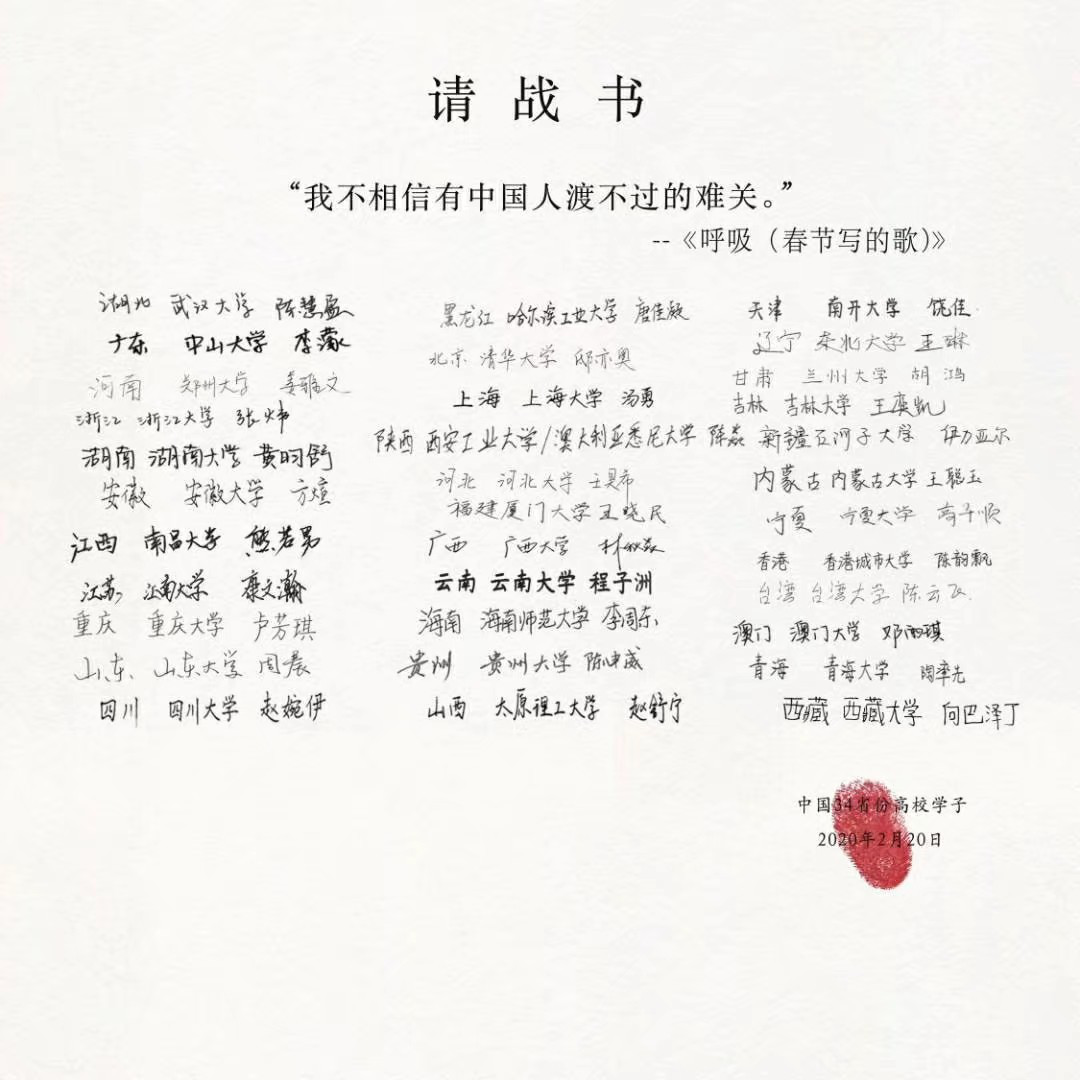 请战书
“我不相信有中国人渡不过的难关。”
--《呼吸（春节写的歌）》
湖北 武汉大学 陈慧盈
广东 中山大学 李濛
河南 郑州大学 姜雅文
浙江 浙江大学 张炜
湖南 湖南大学 黄昀舒
安徽 安徽大学 方煊
江西 南昌大学 熊若男
江苏 江南大学 康文瀚
重庆 重庆大学 卢芳琪
山东 山东大学 周晨
四川 四川大学 赵婉伊
黑龙江 哈尔滨工业大学 唐佳凝
北京 清华大学 邸亦奥
上海 上海大学 汤勇
陕西 西安工业大学/澳大利亚悉尼大学 陈焱
河北 河北大学
福建厦门大学王晓民
广西 广西大学
云南 云南大学 程子洲
海南 海南师范大学 李周东
贵州 贵州大学 陈申威
山西 太原理工大学 赵舒宁
天津 南开大学 饶佳
辽宁 东北大学 王琳
甘肃 兰州大学 胡鸿
吉林 吉林大学 王奕凯
新疆石河子大学 伊力亚尔
内蒙古 内蒙古大学 王聪玉
宁夏 宁夏大学
香港 香港城市大学 陈韵飘
台湾 台湾大学 陈云飞
澳门 澳门大学 邓雨琪
青海 青海大学 陶李先
西藏 西藏大学 向巴泽丁
中国34省份高校学子
2020年2月20日